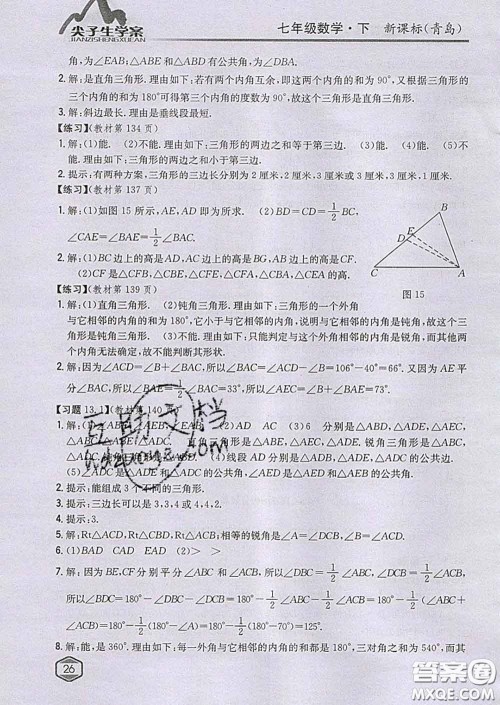 尖子生学案
JIANZISHENGXUEAN
七年级数学·下 新课标(青岛)
角,为∠EAB;△ABE和△ADE的公共角,为∠DBA.
2. 解:是直角三角形. 理由如下:若有两个内角互余,即这两个内角和为90°,故根据三角形的
三个内角的和为180°可得第三个内角的度数为90°,故此三角形是直角三角形.
3. 解:斜边最长. 理由是垂线段最短.
【练习】(教材第134页)
1. 解:(1)能. (2)不能. 理由如下:三角形的两边之和等于第三边. (3)能. (4)不能. 理由如下:三角形的两边之和小于第三边.
2. 提示:有两种方案,三角形的三边长分别为2厘米,3厘米,4厘米或3厘米,3厘米,3厘米.
【练习】(教材第137页)
1. 解:(1)如图15所示,AE,AD即为所求. (2)BD=CD=1/2BC,
∠CAE=∠BAE=1/2∠BAC.
2. 解:(1)BC上的高是AD,AC上的高是BG,AB上的高是CF.
(2)CF是△CFB,△CFA,△CFE,△CBE,△CEA的高.
B
E
D
C
A
图15
【练习】(教材第139页)
1. 解:(1)直角三角形. (2)钝角三角形. 理由如下:三角形的一个外角
与它相邻的内角的和为180°,它小于与它相邻的内角,说明与它相邻的内角是钝角,故这个三
角形是钝角三角形. (3)不能. 理由如下:只能判定与这个外角相邻的内角是锐角,而其他两
个内角无法确定,故不能判断其形状.
2. 解:因为∠ACD=∠B+∠BAC,所以∠BAC=∠ACD-∠B=106°-40°=66°. 又因为AE平
分∠BAC,所以∠BAE=1/2∠BAC=33°,所以∠AED=∠B+∠BAE=73°.
【习题13.1】(教材第140页)
(2)AD AC (3)6 分别是△ABD,△ADE,△AEC,
直角三角形是△ABD,△ADE. 锐角三角形是△ABC,
(4)线段AD分别是△ABD,△ADE,△ADC的公共边.
(5)∠ADE是△ADE和△ADC的公共角,∠AED是△AED和△AEB的公共角.
2. 提示:能组成3个不同的三角形.
3. 提示:三边长可以是3,3,4或4,4,2.
4. 提示:3.
5. 解:Rt△ACD,Rt△CBD,Rt△ABC;相等的锐角是∠A=∠DCB,∠B=∠ACD.
6. (1)BAD CAD EAD (2)> >
7. 解:因为BE,CF分别平分∠ABC和∠ACB,所以∠DBC=1/2∠ABC,∠DCB=1/2∠ACB,
所以∠BDC=180°-∠DBC-∠DCB=180°-1/2∠ABC-1/2∠ACB=180°-1/2(∠ABC+
∠ACB)=180°-1/2(180°-∠A)=180°-1/2(180°-70°)=125°.
8. 解:能,是360°. 理由如下:每一个外角与它相邻的内角的和都是180°,三对角之和为540°,而其
26
答案圈
MXQE.COM